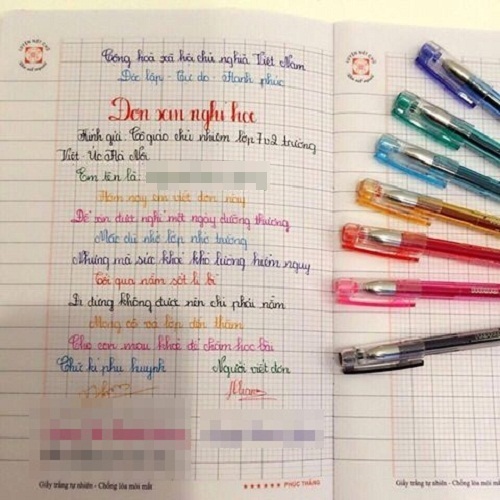 Cộng hoà xã hội chủ nghĩa Việt Nam
Độc lập - Tự do - Hạnh phúc
Đơn xin nghỉ học
Kính gửi: Cô giáo chủ nhiệm lớp 7a2 trường
Việt - Úc Hà Nội
Em tên là:
Hôm nay em viết đơn này
Để xin được nghỉ một ngày dưỡng thương
Mặc dù nhớ lớp nhớ trường
Nhưng mà sức khoẻ khó lường hiểm nguy
Tối qua nằm sốt li bì
Đi đứng không được nên chỉ phải nằm
Mong cô và lớp đến thăm
Cho con mau khoẻ để chăm học bài
Chữ kí phụ huynh
Người viết đơn
Giấy trắng tự nhiên - Chống lóa mỏi mắt
PHÚC THẮNG
Giấy trắng tự nhiên - Chống lóa mỏi mắt